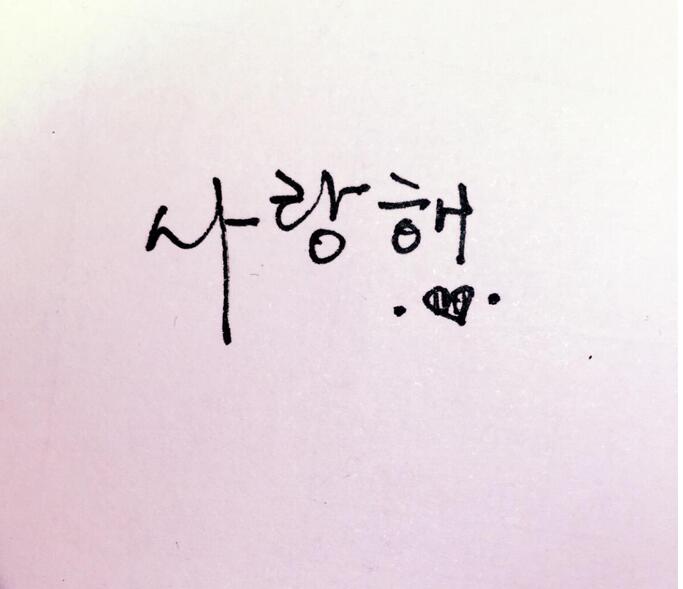 사랑해
.♥.